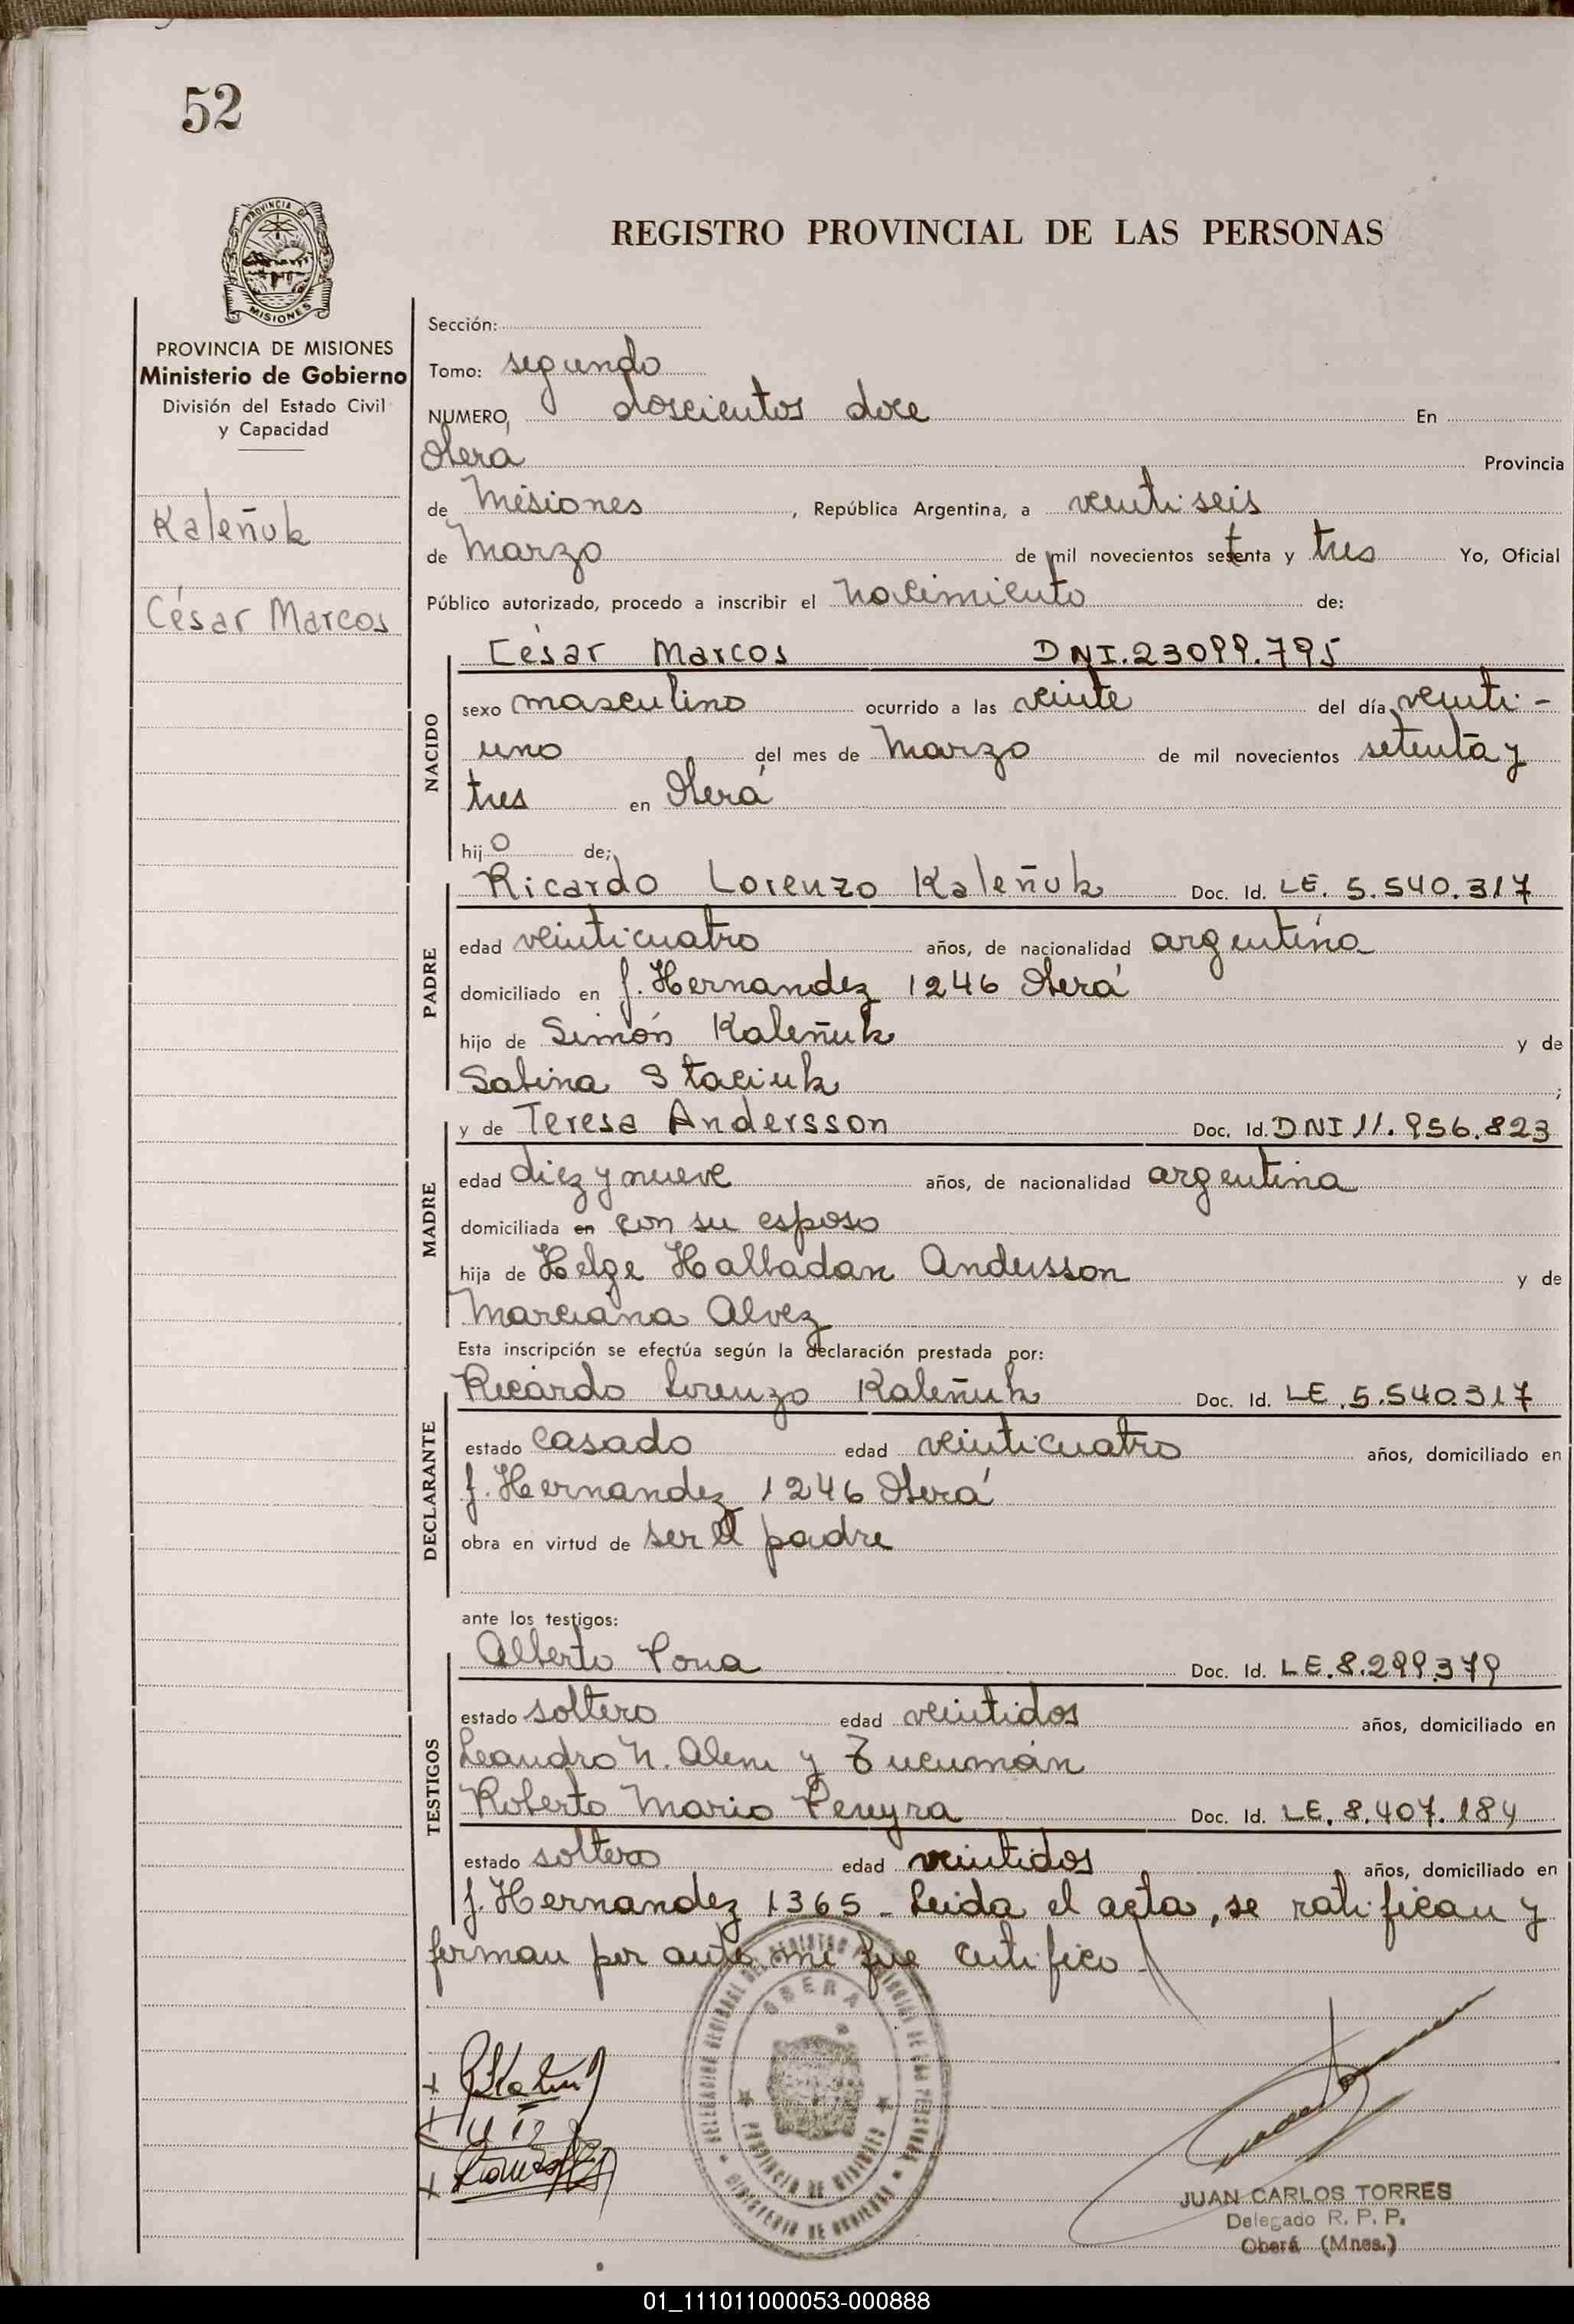 52
PROVINCIA DE
MISIONES
REGISTRO PROVINCIAL DE LAS PERSONAS
PROVINCIA DE MISIONES
Ministerio de Gobierno
División del Estado Civil
y Capacidad
Kaleñuk
César Marcos
Sección:
Tomo: segundo
NUMERO, doscientos doce En
Oberá Provincia
de Misiones, República Argentina, a veinti seis
de Marzo de mil novecientos setenta y tres Yo, Oficial
Público autorizado, procedo a inscribir el nacimiento de:
NACIDO
César Marcos DNI.23099.795
sexo masculino ocurrido a las veinte del día veinti-
uno del mes de Marzo de mil novecientos setenta y
tres en Oberá
hijo de;
PADRE
Ricardo Lorenzo Kaleñuk Doc. Id. LE. 5.540.317
edad veinticuatro años, de nacionalidad argentina
domiciliado en J. Hernandez 1246 Oberá
hijo de Simón Kaleñuk y de
Sabina Staciuk ;
MADRE
y de Teresa Andersson Doc. Id. DNI 11.956.823
edad diez y nueve años, de nacionalidad argentina
domiciliada en con su esposo
hija de Helge Halbadan Andersson y de
Marciana Alvez
Esta inscripción se efectúa según la declaración prestada por:
DECLARANTE
Ricardo Lorenzo Kaleñuk Doc. Id. LE.5.540.317
estado casado edad veinticuatro años, domiciliado en
J. Hernandez 1246 Oberá
obra en virtud de ser el padre
ante los testigos:
TESTIGOS
Alberto Doc. Id. LE.8.299.379
estado soltero edad veintidos años, domiciliado en
Leandro N. Alem y Tucumán
Roberto Mario Pereyra Doc. Id. LE. 8.407.184
estado soltero edad veintidos años, domiciliado en
J. Hernandez 1365 - Leida el acta, se ratifican y
firman por ante mi que certifico
OBERA
PROVINCIA DE MISIONES
JUAN CARLOS TORRES
Delegado R. P. P.
Oberá (Mnes.)
01_111011000053-000888